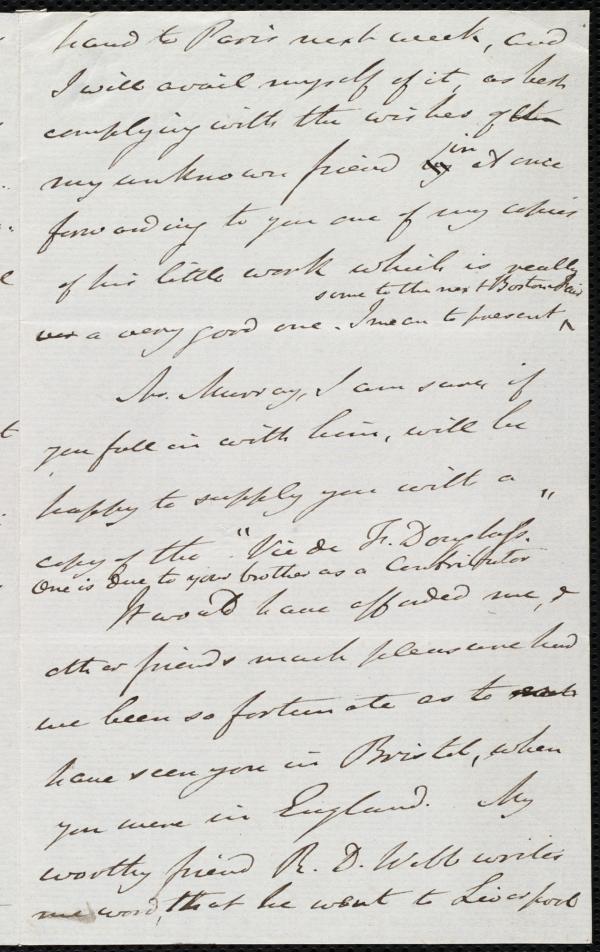 hand to Paris next week, and
I will avail myself of it, as best
complying with the wishes of the
my unknown friend by in at once
forwarding to you one of my copies
of his little work which is really
some to the next Boston Fair
a very good one. I mean to present ^
Mr. Murray, I am sure if
you fall in with him, will be
happy to supply you with a
copy of the "Vie de Fr. Douglass."
One is due to your brother as a Contributor
It would have afforded me, &
other friends much pleasure had
we been so fortunate as to
have seen you in Bristol, when
you were in England. My
worthy friend R. D. Webb writes
me word, that he went to Liverpool